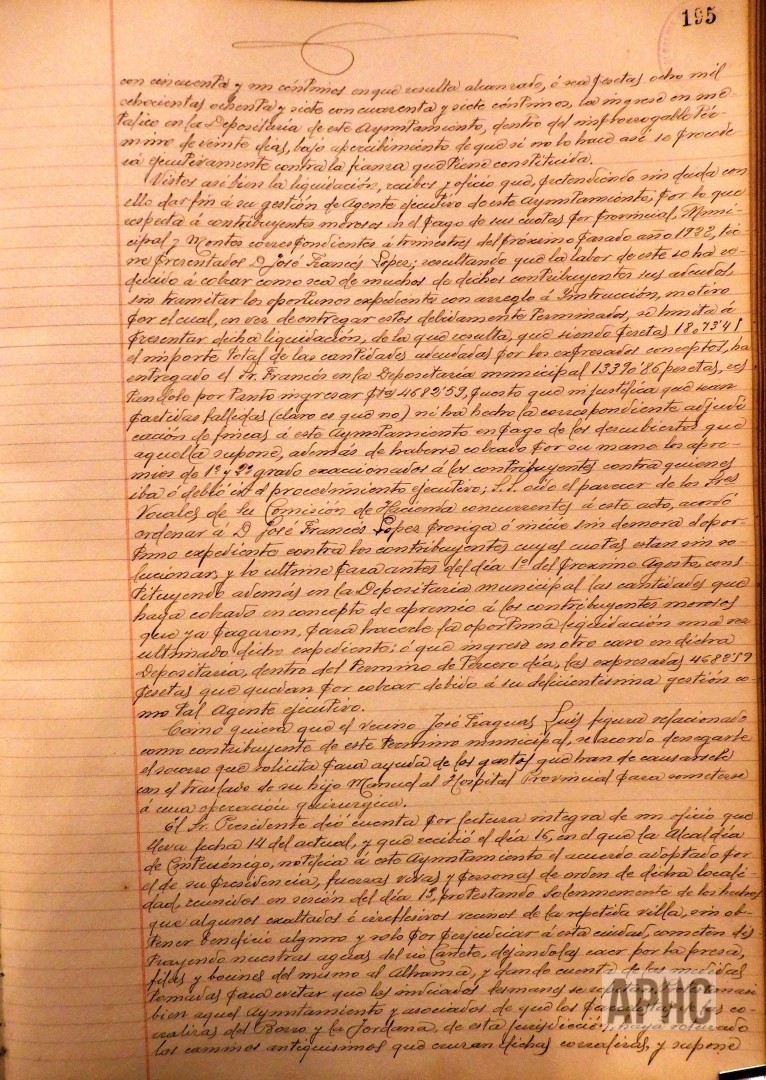 195
con cincuenta y un céntimos en que resulta alcanzado, ó sea pesetas ocho mil
ochocientas ochenta y siete con cuarenta y siete céntimos, la ingrese en me-
talico en la Depositaría de este Ayuntamiento, dentro del improrrogable tér-
mino de veinte días, bajo apercibimiento de que si no lo hace así se procede-
rá ejecutivamente contra la fianza que tiene constituida.
Vistos asi bien la liquidación, recibos y oficio que, pretendiendo sin duda con
ello dar fin á su gestión de Agente ejecutivo de este Ayuntamiento, por lo que
respecta á contribuyentes morosos en el pago de sus cuotas por provincial, Muni-
cipal y Montes correspondientes á trimestres del proximo pasado año 1922, tie-
ne presentados D. José Francés Lopez; resultando que la labor de este se ha re-
ducido á cobrar como sea de muchos de dichos contribuyentes sus adeudos,
sin tramitar los oportunos expedientes con arreglo á Instrucción, motivo
por el cual, en vez de entregar estos debidamente terminados, se limita á
presentar dicha liquidación, de la que resulta, que siendo pesetas
el importe total de las cantidades adeudadas por los expresados conceptos, ha
entregado el Sr. Francés en la Depositaría municipal 13390'86 pesetas, res-
tandole por tanto ingresar ptas 4682'59, puesto que ni justifica que sean
partidas fallidas (claro es que no) ni ha hecho la correspondiente adjudi-
cación de fincas á este Ayuntamiento en pago de los descubiertos que
aquella supone, además de haberse cobrado por su mano los apre-
mios de 1º y 2º grado exaccionados á los contribuyentes contra quienes
iba ó debió ir el procedimiento ejecutivo; S.S. oido el parecer de los Sres
Vocales de su Comisión de Hacienda concurrentes á este acto, acordó
ordenar á D. José Francés Lopez prosiga ó inicie sin demora el opor-
tuno expediente contra los contribuyentes cuyas cuotas estan sin so-
lucionar, y lo ultime para antes del día 1º del proximo Agosto, cons-
tituyendo además en la Depositaría municipal las cantidades que
haya cobrado en concepto de apremio á los contribuyentes morosos
que ya pagaron, para hacerle la oportuna liquidación una vez
ultimado dicho expediente; ó que ingrese en otro caso en dicha
Depositaría, dentro del termino de tercero día, las expresadas 4682'59
pesetas que quedan por cobrar debido á su deficientisima gestión co-
mo tal Agente ejecutivo.
Como quiera que el vecino José Fraguas Luis figura relacionado
como contribuyente de este termino municipal, se acordo denegarle
el socorro que solicita para ayuda de los gastos que han de causarsele
con el traslado de su hijo Manuel al Hospital Provincial para someterse
á una operación quirurgica.
El Sr. Presidente dió cuenta por lectura integra de un oficio que
lleva fecha 14 del actual, y que recibió el día 16, en el que la Alcaldía
de Cintruénigo, notifica á este Ayuntamiento el acuerdo adoptado por
el de su presidencia, fuerzas vivas y personas de orden de dicha locali-
dad, reunidos en sesión del día 13, protestando solemnemente de los hechos
que algunos exaltados é irreflexivos vecinos de la repetida villa, sin ob-
tener beneficio alguno y solo por perjudicar á esta ciudad, cometen dis-
trayendo nuestras aguas del rio Cañete, dejandolas caer por la presa,
filas y bocines del mismo al Alhama, y dando cuenta de las medidas
tomadas para evitar que los indicados desmanes se repitan
bien aquel Ayuntamiento y asociados de que los
corralizas del y la Jordana, de esta jurisdicción, haya roturado
los caminos antiquisimos que cruzan dichas corralizas, y supone
APHC